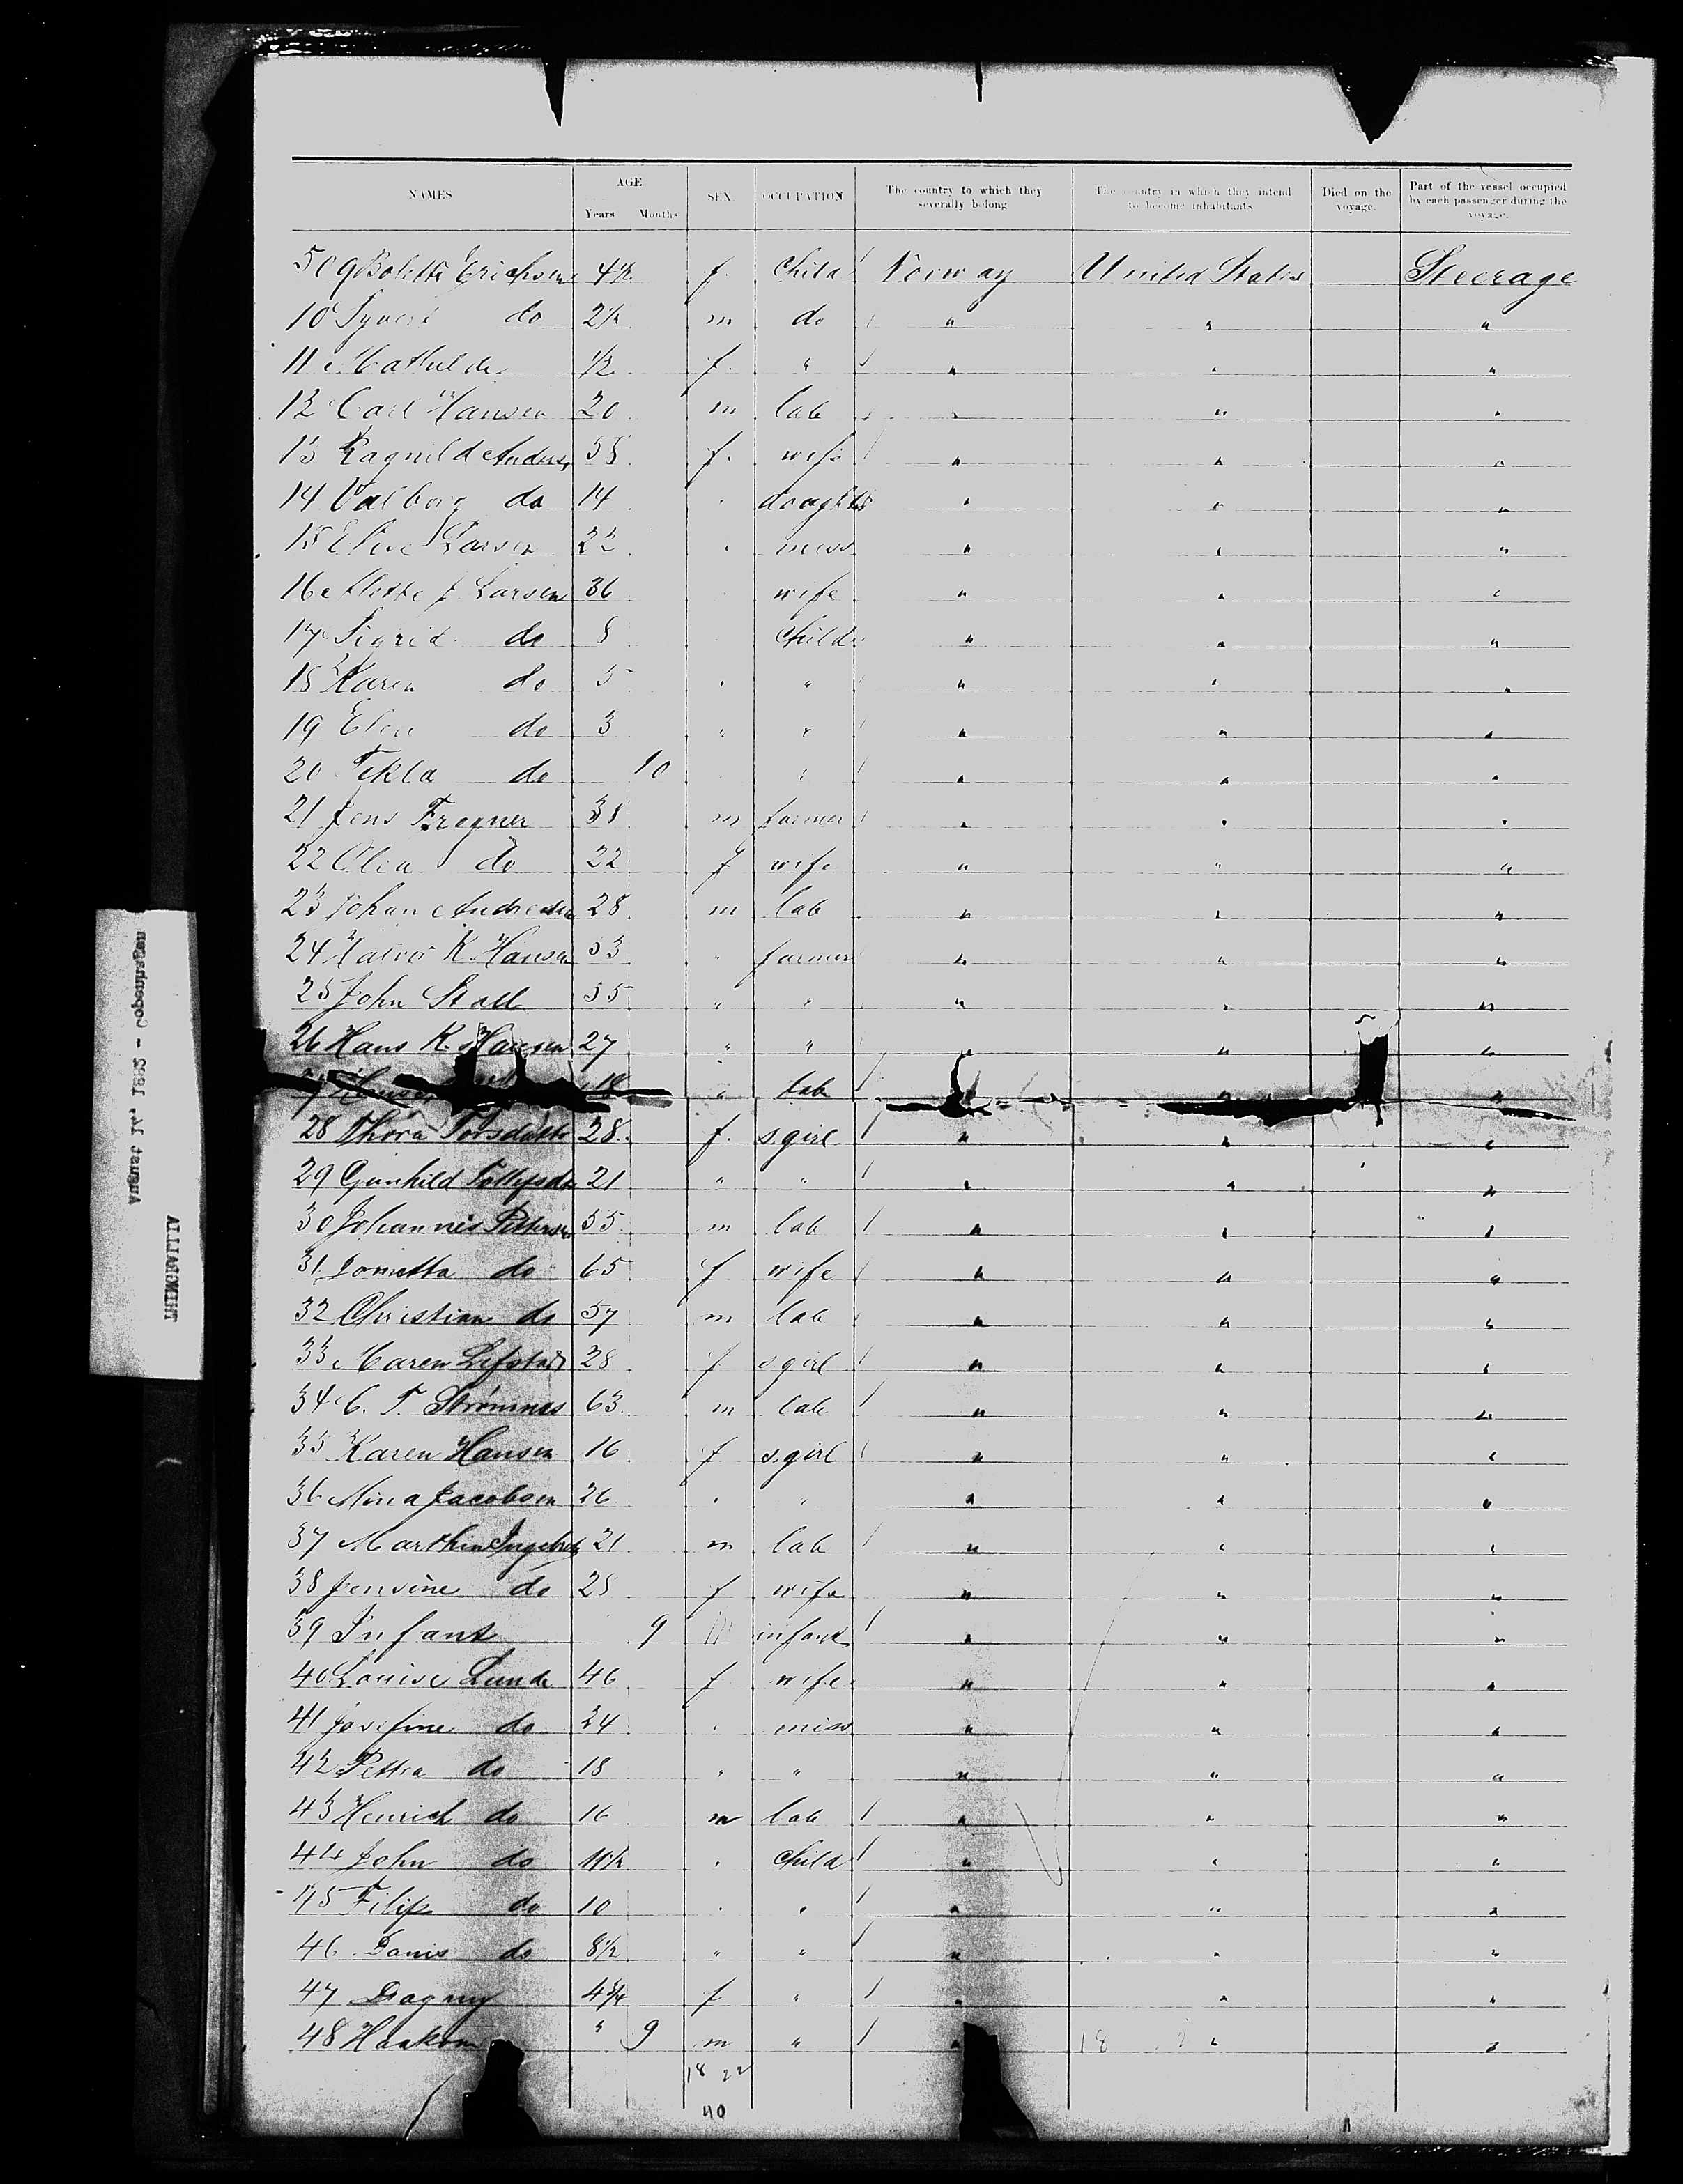 NAMES AGE Years Months SEX OCCUPATION The country to which they severally belong The country in which they intend to become inhabitants Died on the voyage. Part of the vessel occupied by each passenger during the voyage.
509 Bolette Erichsen 4½ f. Child Norway United States Steerage
10 Syvert do 2½ m do " " "
11 Mathilde ½ f. " " " "
12 Carl Hansen 20 m lab " " "
13 Ragnild Anders 58 f. wife " " "
14 Valborg do 14 " daughter " " "
15 Larsen 22 " miss " " "
16 J Larsen 36 wife " " "
17 Sigrid do 8 Child " " "
18 Karen do 5 " " " " "
19 Elen do 3 " " " " "
20 Tekla do 10 " " " "
21 Jens Fregner 38 m farmer " " "
22 Olea do 22 f wife " " "
23 Johan Andresen 28 m lab " " "
24 Halvor K. Hansen 53 " farmer " " "
25 John 55 " " " " "
26 Hans K. Hansen 27 " " " " "
27 18 " lab " "
28 Thora Torsdattr 28 f. s girl " " "
29 Gunhild Tollefsda 21 " " " " "
30 Johannes Petterse 55 m lab " " "
31 do 65 f wife " " "
32 Christian do 57 m lab " " "
33 Maren Lefstad 28 f s girl " " "
34 C. T. Strømnes 63 m lab " " "
35 Karen Hansen 16 f s.girl " " "
36 Mina Jacobsen 26 " " " " "
37 Marthin Ingebret 21 m lab " " "
38 Jensine do 28 f wife " " "
39 Infant 9 m infant " " "
40 Louise Lunde 46 f wife " " "
41 Josefine do 24 " miss " " "
42 Pettra do 18 " " " " "
43 Henrich do 16 m lab " " "
44 John do 11½ " Child " " "
45 Filip do 10 " " " " "
46 do 8½ " " " " "
47 Dagny 4¾ f " " " "
48 Haakon " 9 m " " " "
18 22
40
THINGVALLA
August 17, 1882 - Copenhagen